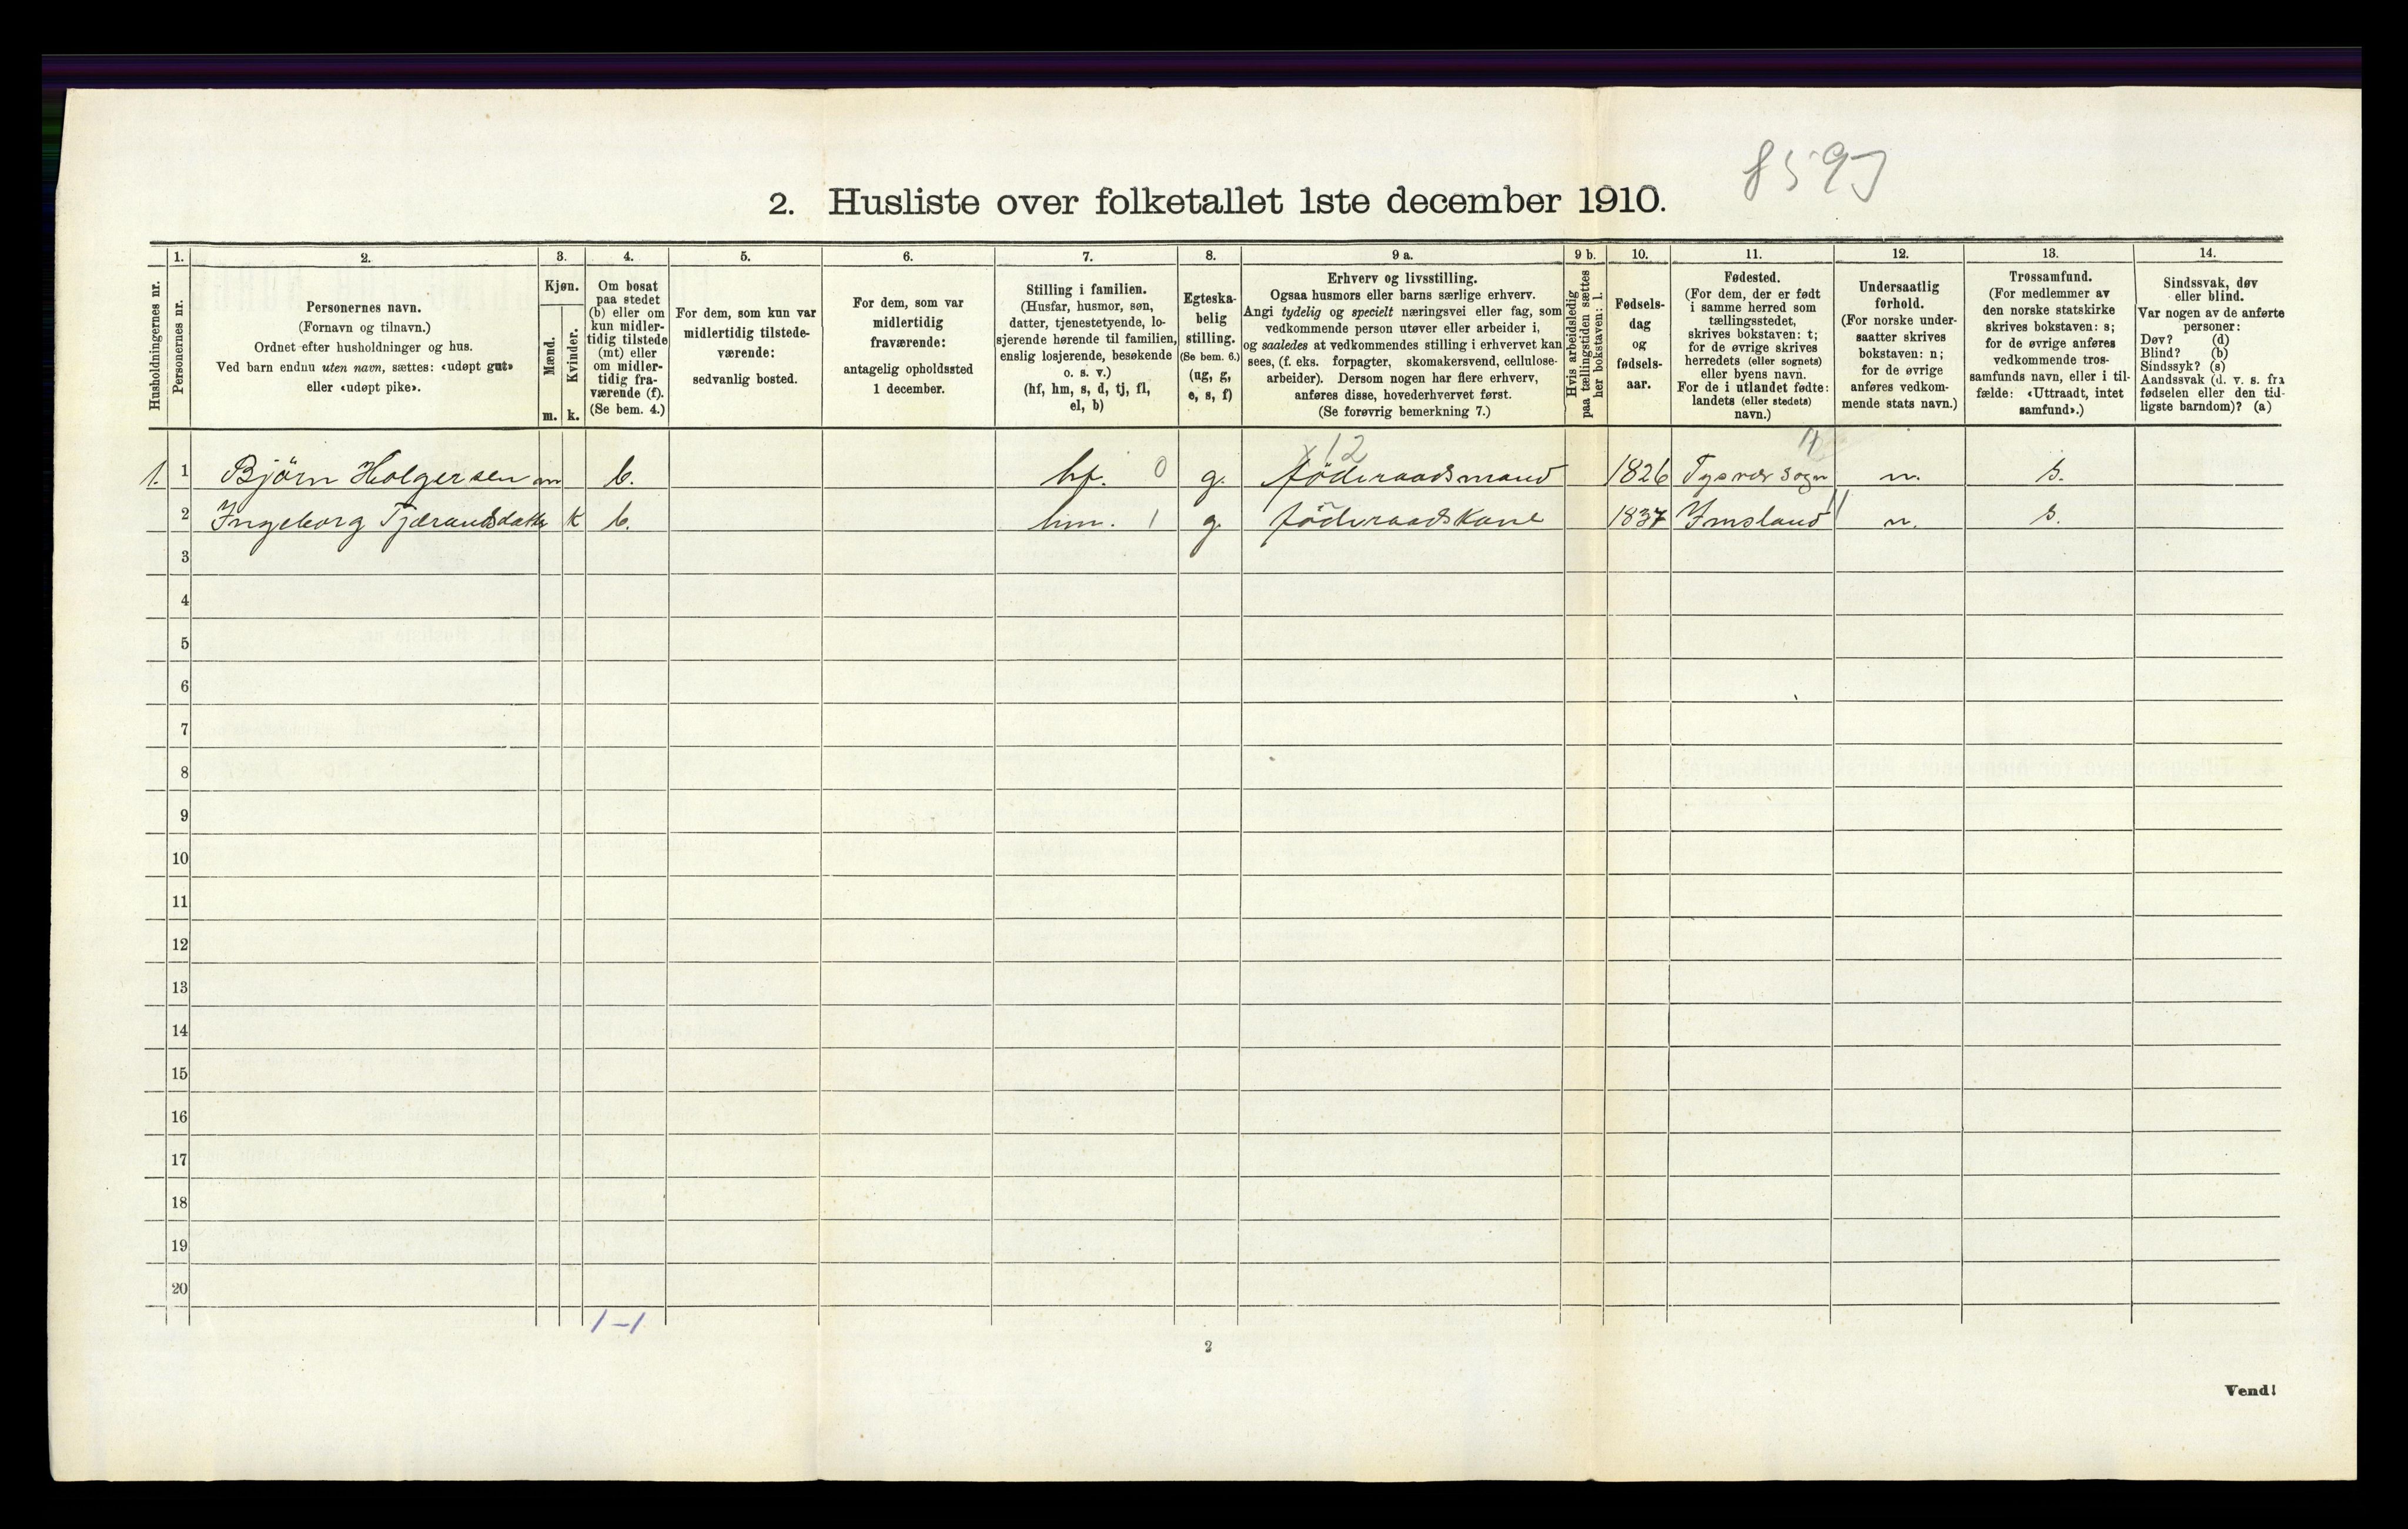 8597
2. Husliste over folketallet 1ste december 1910.
1. 2. 3. 4. 5. 6. 7. 8. 9 a. 9 b. 10. 11. 12. 13. 14.
Husholdningernes nr.
Personernes nr.
Personernes navn.
(Fornavn og tilnavn.)
Ordnet efter husholdninger og hus.
Ved barn endnu uten navn, sættes: «udøpt gut»
eller «udøpt pike».
Kjøn.
Mænd.
m.
Kvinder.
k.
Om bosat
paa stedet
(b) eller om
kun midler-
tidig tilstede
(mt) eller
om midler-
tidig fra-
værende (f).
(Se bem. 4.)
For dem, som kun var
midlertidig tilstede-
værende:
sedvanlig bosted.
For dem, som var
midlertidig
fraværende:
antagelig opholdssted
1 december.
Stilling i familien.
(Husfar, husmor, søn,
datter, tjenestetyende, lo-
sjerende hørende til familien,
enslig losjerende, besøkende
o. s. v.)
(hf, hm, s, d, tj, fl,
el, b)
Egteska-
belig
stilling.
(Se bem. 6.)
(ug, g,
e, s, f)
Erhverv og livsstilling.
Ogsaa husmors eller barns særlige erhverv.
Angi tydelig og specielt næringsvei eller fag, som
vedkommende person utøver eller arbeider i,
og saaledes at vedkommendes stilling i erhvervet kan
sees, (f. eks. forpagter, skomakersvend, cellulose-
arbeider). Dersom nogen har flere erhverv,
anføres disse, hovederhvervet først.
(Se forøvrig bemerkning 7.)
Hvis arbeidsledig
paa tællingstiden sættes
her bokstaven: l.
Fødsels-
dag
og
fødsels-
aar.
Fødested.
(For dem, der er født
i samme herred som
tællingsstedet,
skrives bokstaven: t;
for de øvrige skrives
herredets (eller sognets)
eller byens navn.
For de i utlandet fødte:
landets (eller stedets)
navn.)
Undersaatlig
forhold.
(For norske under-
saatter skrives
bokstaven: n;
for de øvrige
anføres vedkom-
mende stats navn.)
Trossamfund.
(For medlemmer av
den norske statskirke
skrives bokstaven: s;
for de øvrige anføres
vedkommende tros-
samfunds navn, eller i til-
fælde: «Uttraadt, intet
samfund».)
Sindssvak, døv
eller blind.
Var nogen av de anførte
personer:
Døv? (d)
Blind? (b)
Sindssyk? (s)
Aandssvak (d. v. s. fra
fødselen eller den tid-
ligste barndom)? (a)
x 12 11
1. 1 Björn Holgersen m b. hf. 0 g. föderaadsmand 1826 Tysvær sogn n. s.
2 Ingeborg Tjærandsdatter k b. hm. 1 g. föderaadskone 1837 Imsland 11 n. s.
3
4
5
6
7
8
9
10
11
12
13
14
15
16
17
18
19
20
1-1
2
Vend!